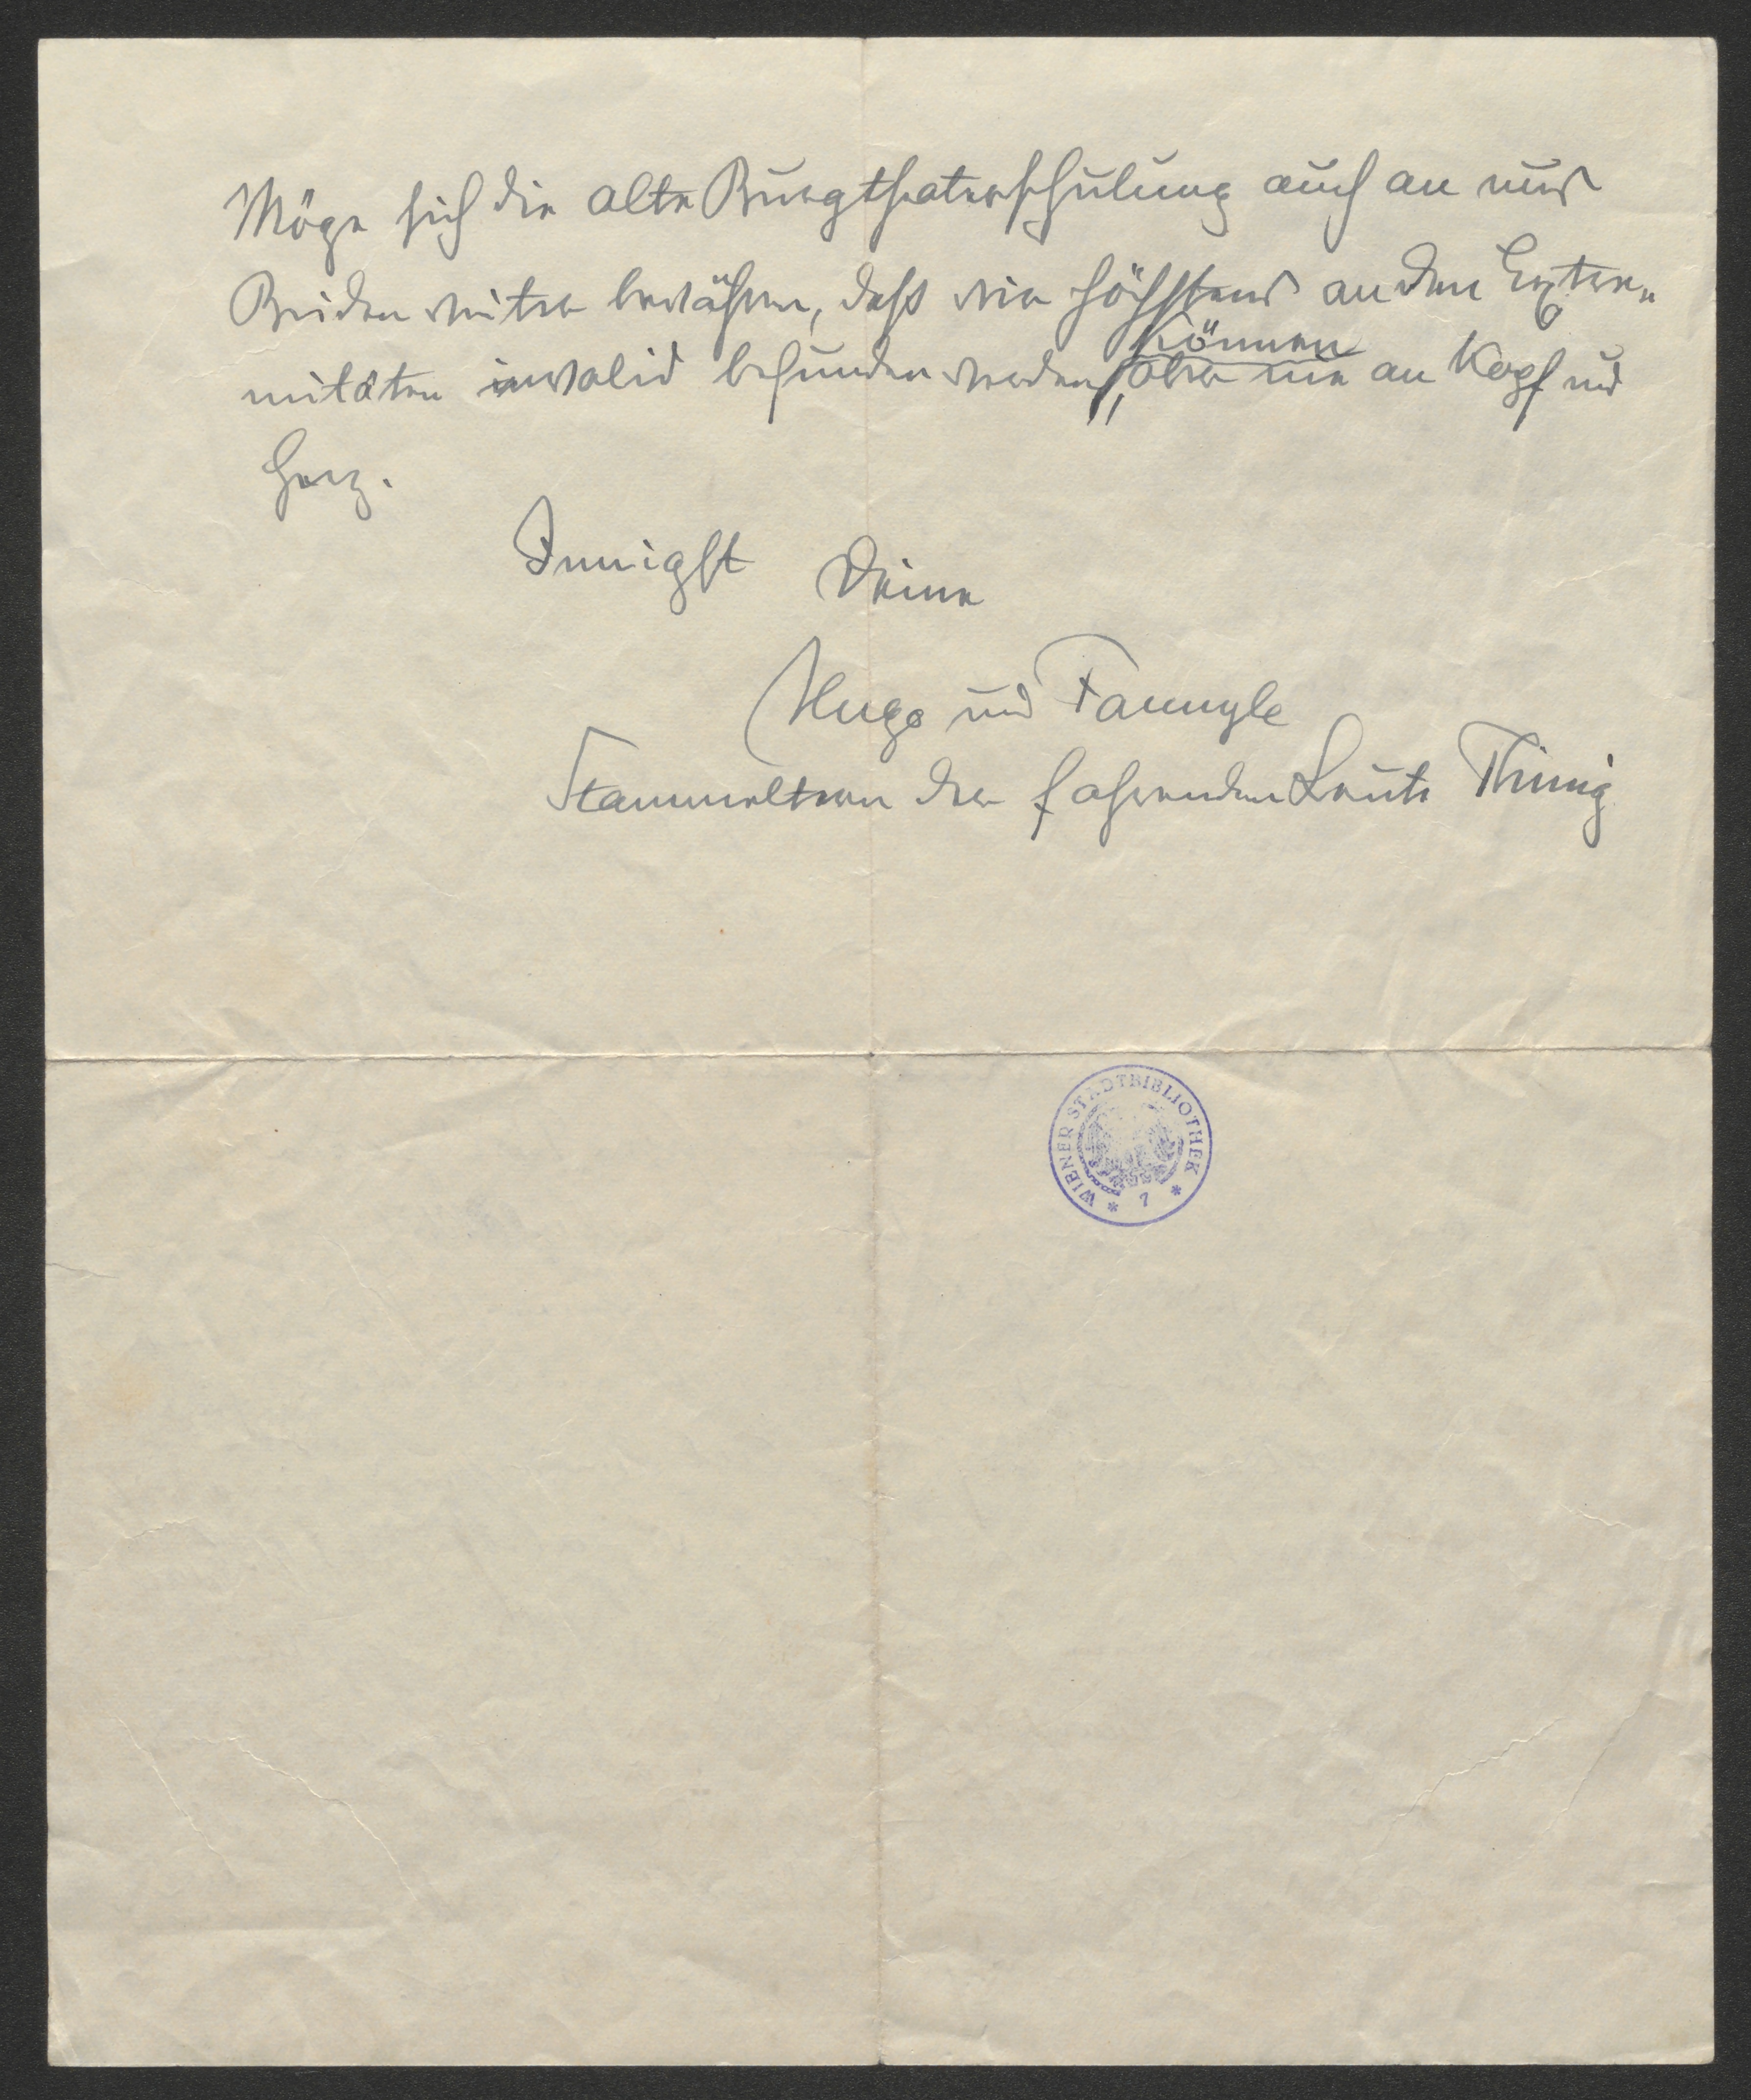 Möge sich die alte Burgtheaterschulung auch an uns
Beiden weiter bewähren, daß wir höchstens an den Extre-
mitäten invalid befunden werden können, aber nie an Kopf und
Herz.
Innigst Deine
Hugo und Fannyle
Stammeltern der fahrenden Leute Thimig
WIENER STADTBIBLIOTHEK * 7 *